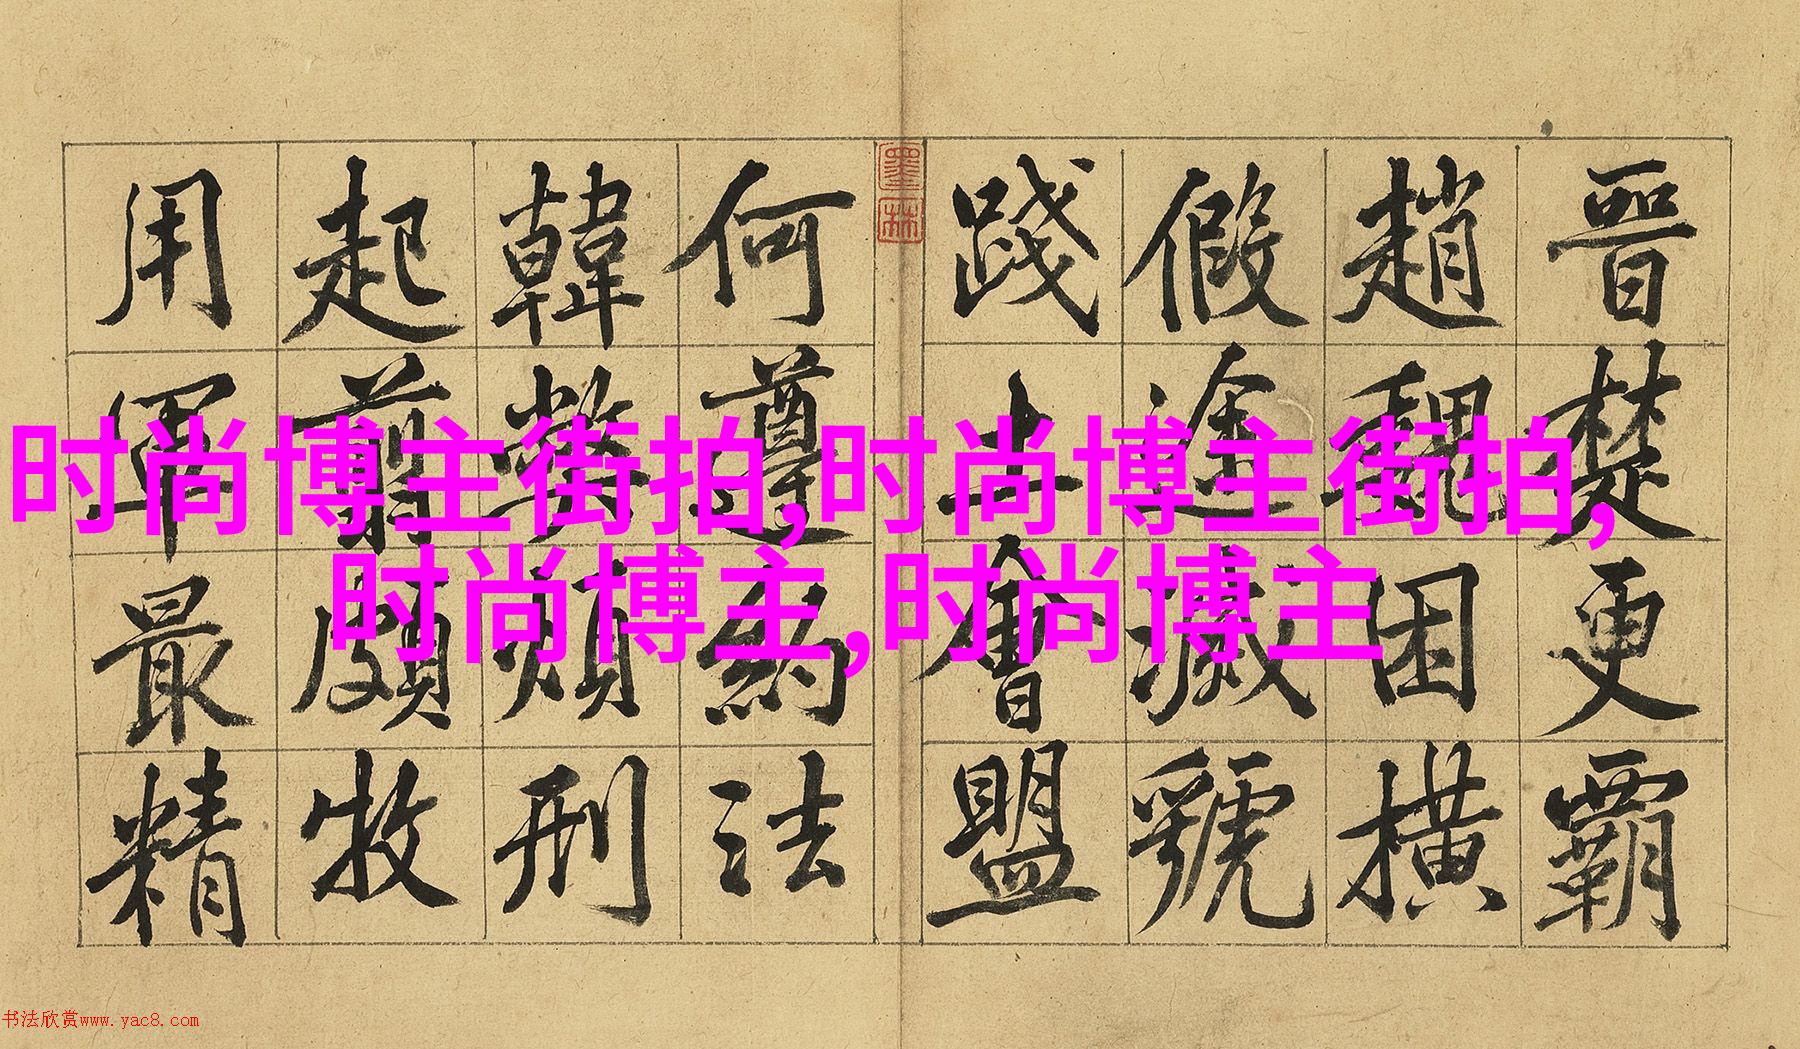 晉楚更霸
趙魏困橫
假途滅虢
踐土會盟
墨林
何遵約法
韓弊煩刑
起翦頗牧
用軍最精
时尚博主街拍,时尚博主街拍,
时尚博主,时尚博主
书法欣赏www.yac8.com